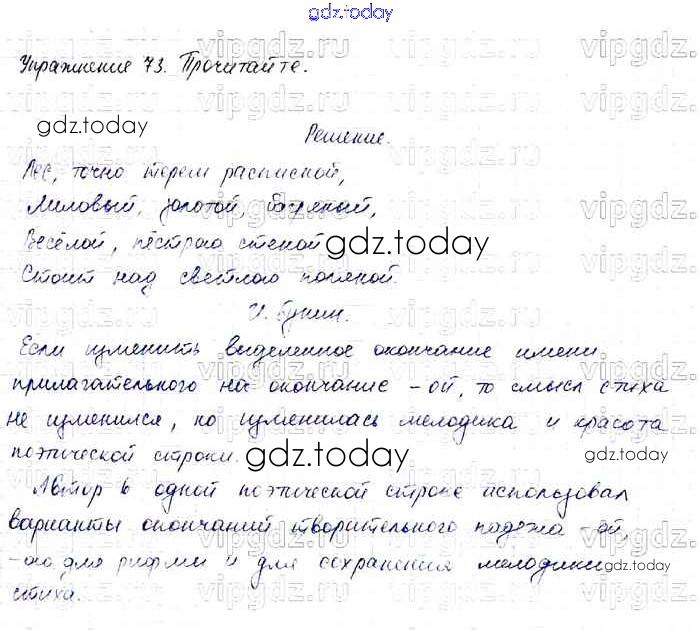 gdz.today
Упражнение 73. Прочитайте.
gdz.today
Решение.
Лес, точно терем расписной,
Лиловый, золотой, багряный,
Весёлой, пёстрою стеной
gdz.today
Стоит над светлою поляной.
И. Бунин.
Если изменить выделенное окончание имени
прилагательного на окончание -ой, то смысл стиха
не изменился, но изменилась мелодика и красота
поэтической строки.
gdz.today
Автор в одной поэтической строке использовал
варианты окончаний творительного падежа -ой,
-ою для рифмы и для сохранения мелодики
стиха.
vipgdz.ru